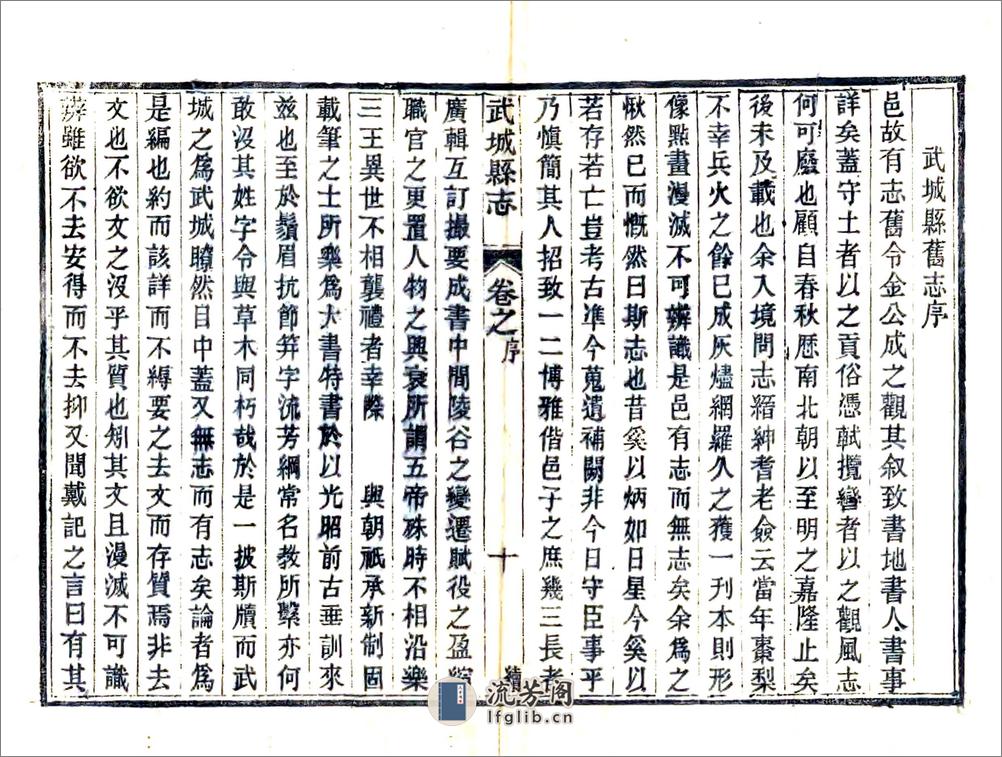 武城縣舊志序
邑故有志舊令金公成之觀其叙致書地書人書事
詳矣蓋守土者以之貢俗憑軾攬轡者以之觀風志
何可廢也顧自春秋歷南北朝以至明之嘉隆止矣
後未及載也余入境問志縉紳耆老僉云當年棗梨
不幸兵火之餘已成灰燼網羅久之獲一刊本則形
像點畫漫滅不可辨識是邑有志而無志矣余爲之
愀然已而慨然曰斯志也昔奚以炳如日星今奚以
若存若亡豈考古準今蒐遺補闕非今日守臣事乎
乃慎簡其人招致一二博雅偕邑子之庶幾三長者
武城縣志
卷之
序
十
續
廣輯互訂撮要成書中間陵谷之變遷賦役之盈縮
職官之更置人物之興衰所謂五帝殊時不相沿樂
三王異世不相襲禮者幸際 興朝祇承新制固
載筆之士所樂爲大書特書於以光昭前古垂訓來
兹也至於鬚眉抗節笄字流芳綱常名教所繫亦何
敢沒其姓字令與草木同朽哉於是一披斯牘而武
城之爲武城瞭然自中蓋又無志而有志矣論者爲
是編也約而該詳而不縟要之去文而存質焉非去
文也不欲文之沒乎其質也矧其文且漫滅不可識
辨雖欲不去安得而不去抑又聞戴記之言曰有其
流芳阁
lfglib.cn